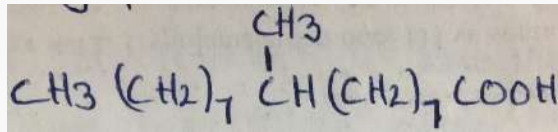 CH3
CH3 (CH2)7 CH (CH2)7 COOH